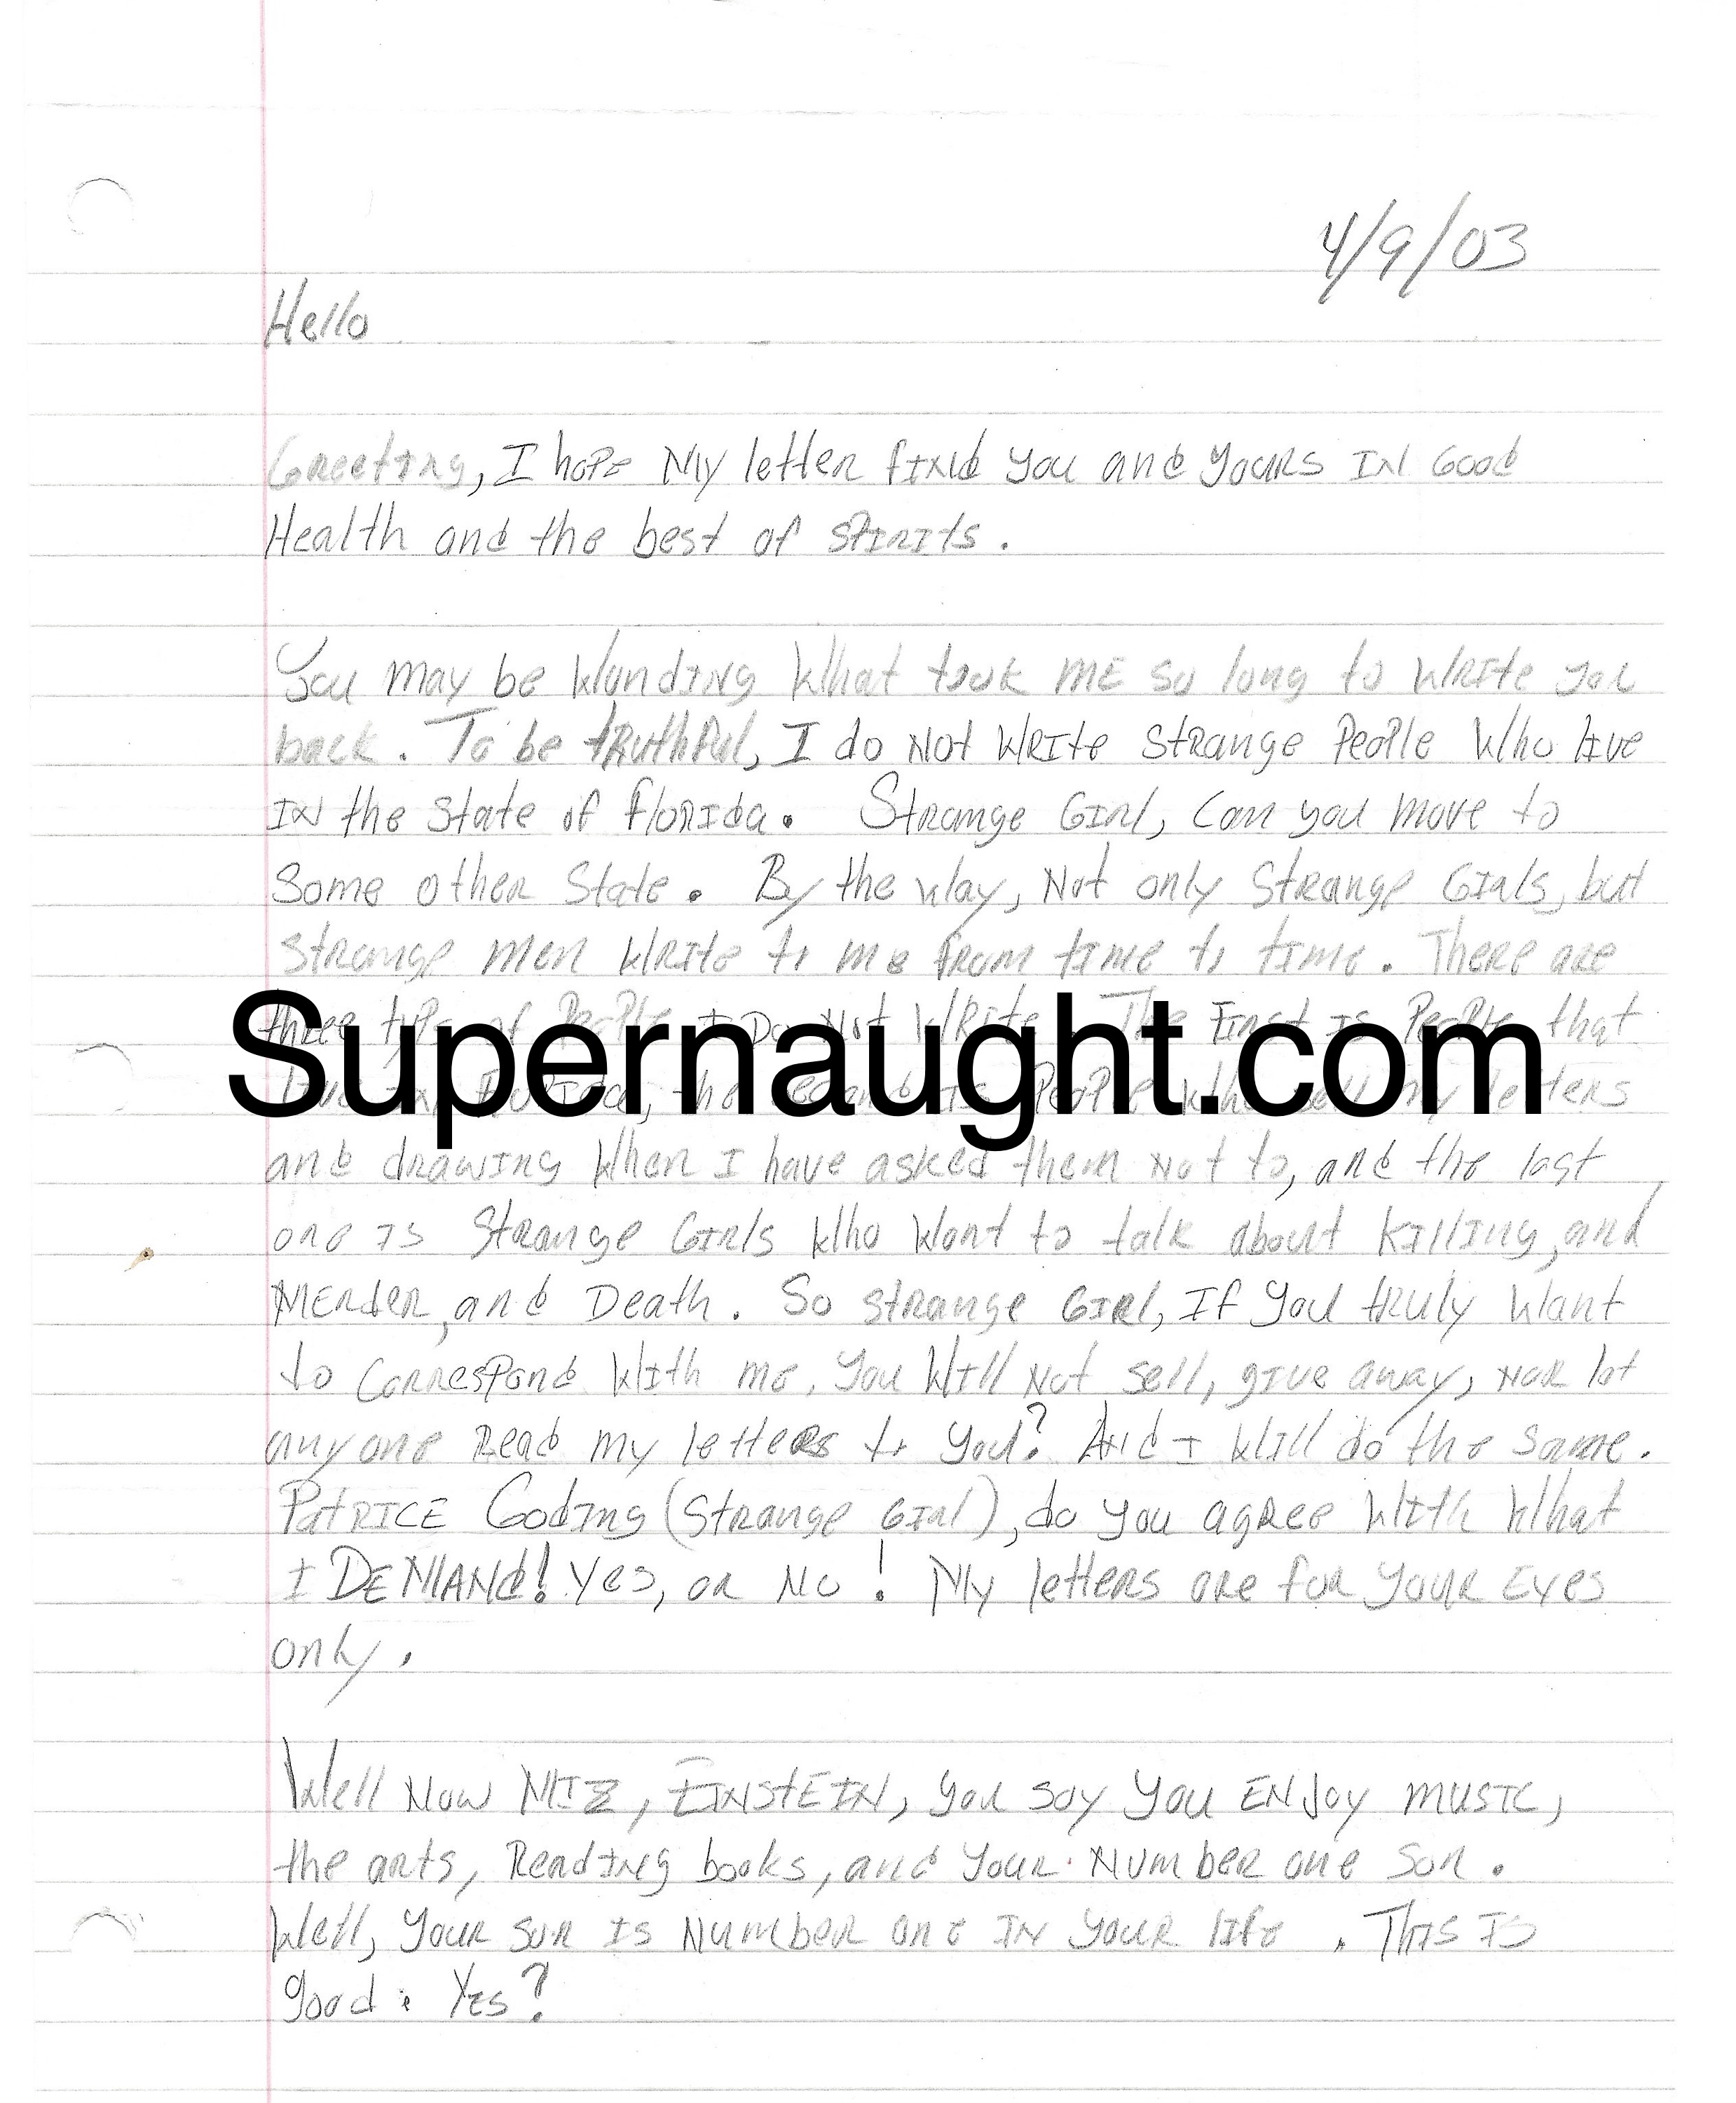 4/9/03
Hello
Greeting, I hope My letter find you and yours in Good
Health and the best of spirits.
You may be wunding what took me so long to write you
back. To be truthful, I do not write strange people who live
in the state of florida. Strange Girl, can you move to
some other state. By the way, not only strange Girls, but
strange men write to me from time to time. There are
three type of people I Do not write. The first is people that
live in florida, the second is people who sell my letters
and drawing when I have asked them not to, and the last
one is strange Girls who want to talk about killing, and
Merder, and Death. So strange Girl, If you truly want
to correspond with me, you will not sell, give away, nor let
anyone read my letters to you? And I will do the same.
Patrice Goding (strange girl), do you agree with what
I DEMANd! Yes, or No! My letters are for your Eyes
only.
Well now Miz, Einstein, you say you enjoy music,
the arts, reading books, and your number one son.
Well, your son is number one in your life. This is
good. Yes?
Supernaught.com